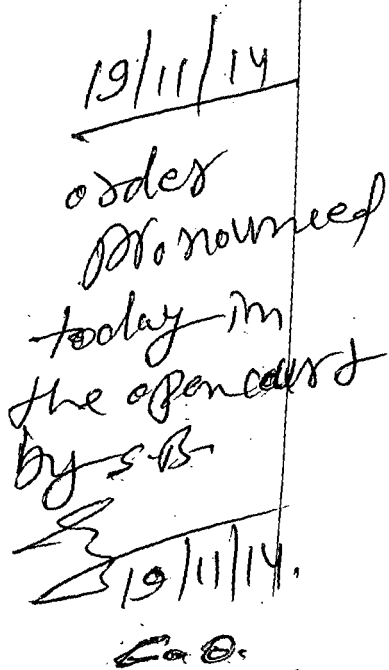 19/11/14
order
pronounced
today in
the open court
by S.B.
19/11/14.
C.O.